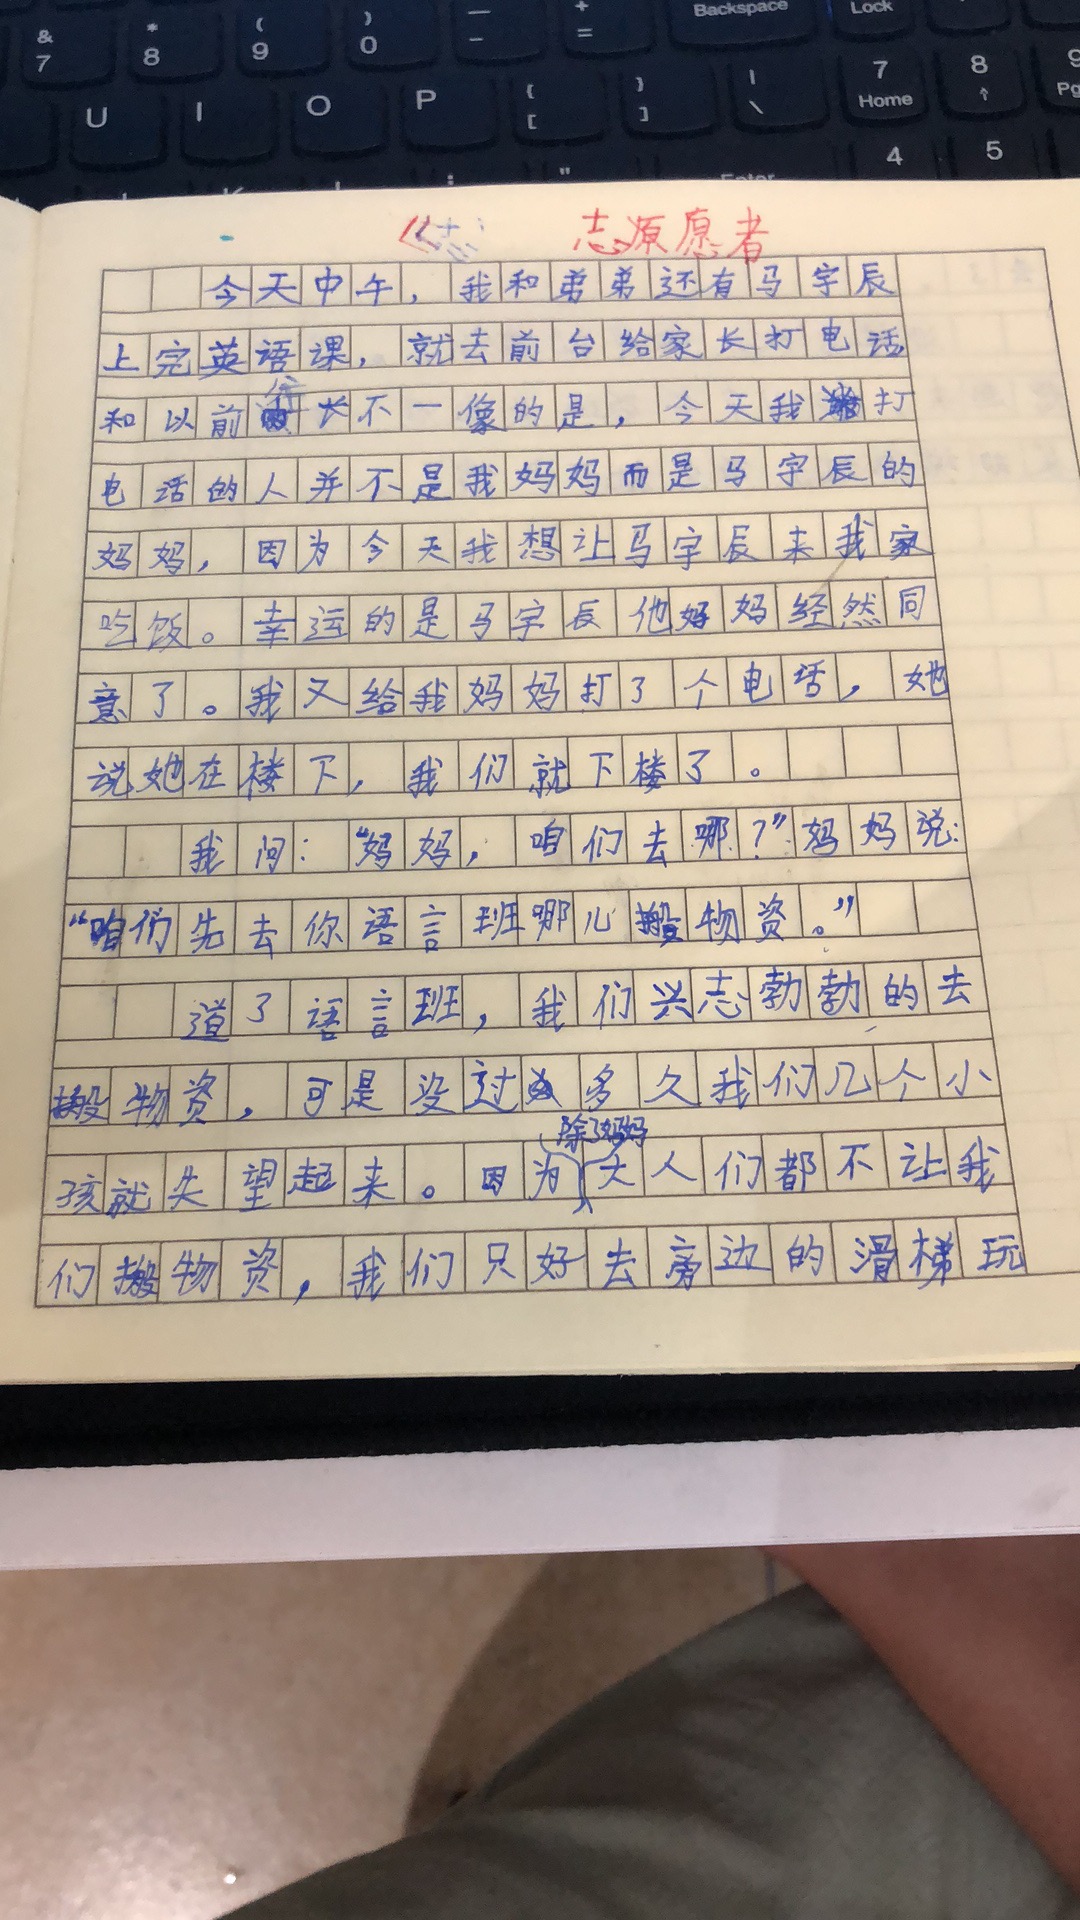 & 7
* 8
( 9
) 0
— -
+ =
Backspace
Lock
U
I
O
P
{ [
} ]
| \
7 Home
8 ↑
9 Pg
4
5
Enter
志原愿者
今天中午，我和弟弟还有马宇辰
上完英语课，就去前台给家长打电话
和以前不一像的是，今天我打
电话的人并不是我妈妈而是马宇辰的
妈妈，因为今天我想让马宇辰来我家
吃饭。幸运的是马宇辰他妈妈经然同
意了。我又给我妈妈打了个电话，她
说她在楼下，我们就下楼了。
我问：“妈妈，咱们去哪？”妈妈说：
“咱们先去你语言班哪儿搬物资。”
道了语言班，我们兴志勃勃的去
搬物资，可是没过多久我们几个小
孩就失望起来。因为(除了妈妈)大人们都不让我
们搬物资，我们只好去旁边的滑梯玩